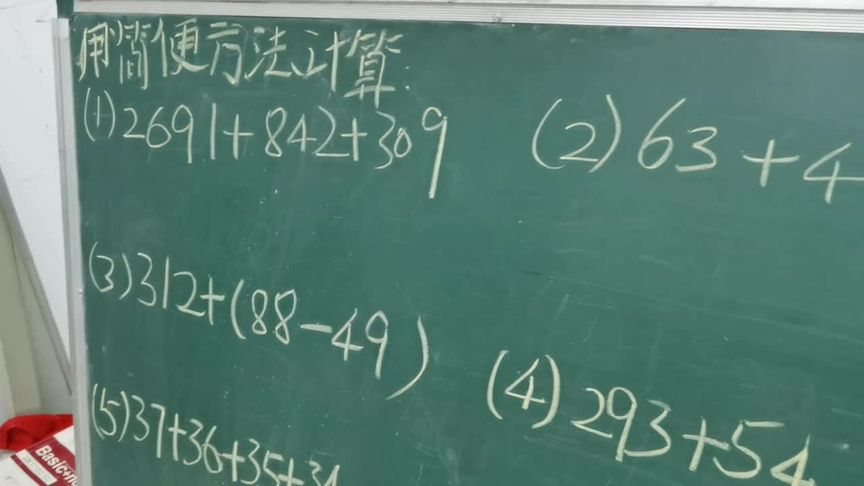 用简便方法计算
(1)2691+842+309
(2)63+4
(3)312+(88-49)
(4)293+54
(5)37+36+35+34
Basic